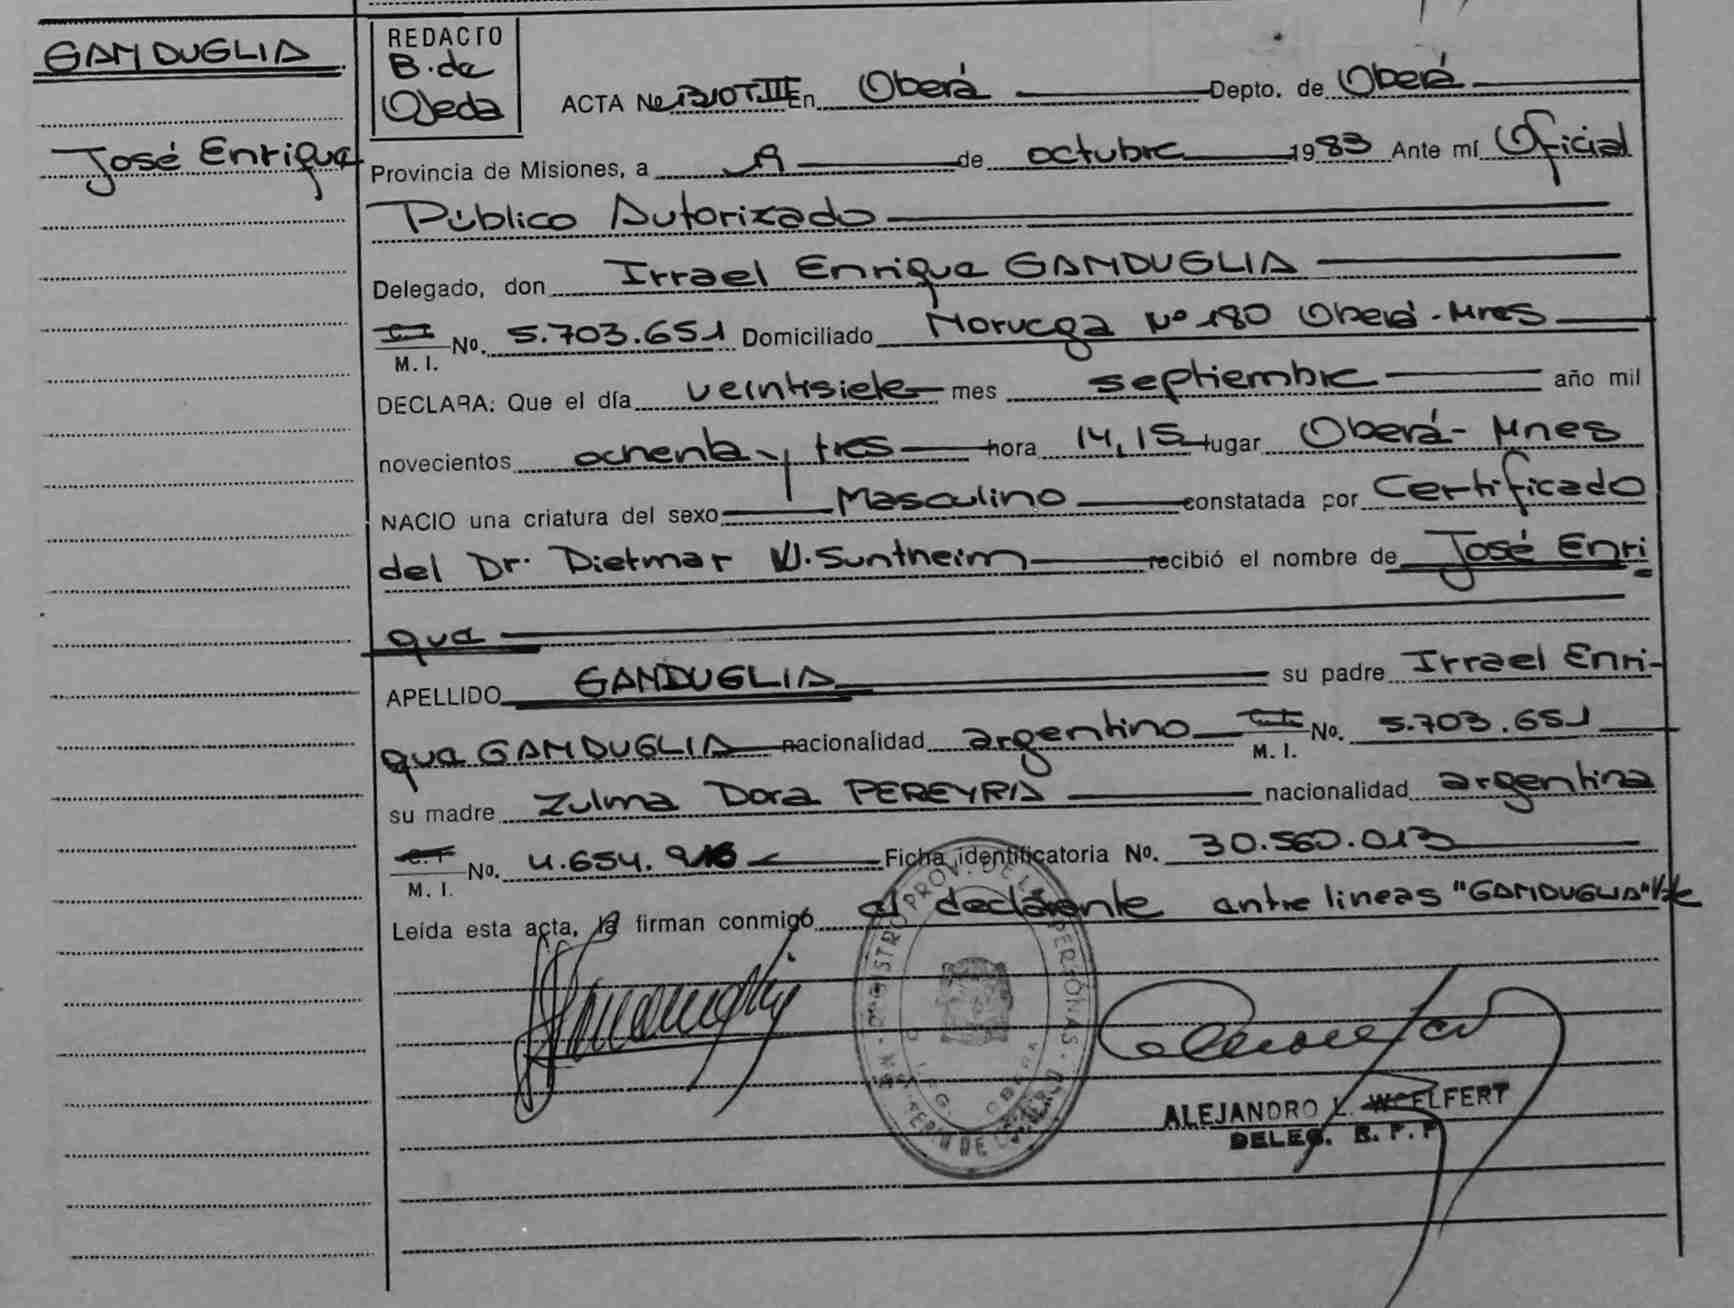 GANDUGLIA
José Enrique
REDACTO
B. de
Ojeda
ACTA No 1310 T.III En Oberá Depto. de Oberá
Provincia de Misiones, a de octubre 1983 Ante mí Oficial
Público Autorizado
Delegado, don Irrael Enrique GANDUGLIA
C.I.
M. I. No. 5.703.651 Domiciliado Noruega Nº 180 Oberá - Mnes
DECLARA: Que el día veintisiete mes septiembre año mil
novecientos ochenta y tres hora 14,15 lugar Oberá - Mnes
NACIO una criatura del sexo Masculino constatada por Certificado
del Dr. Dietmar W. Suntheim recibió el nombre de José Enri
que
APELLIDO GANDUGLIA su padre Irrael Enri-
que GANDUGLIA nacionalidad argentino C.I.
M. I. No. 5.703.651
su madre Zulma Dora PEREYRA nacionalidad argentina
C.I.
M. I. No. 4.654. Ficha identificatoria No. 30.560.013
Leída esta acta, la firman conmigo el declarante entre lineas "GANDUGLIA" Vale
REGISTRO PROV. DE LAS PERSONAS
OBERA
ALEJANDRO L. WOELFERT
DELEG. R. P. P